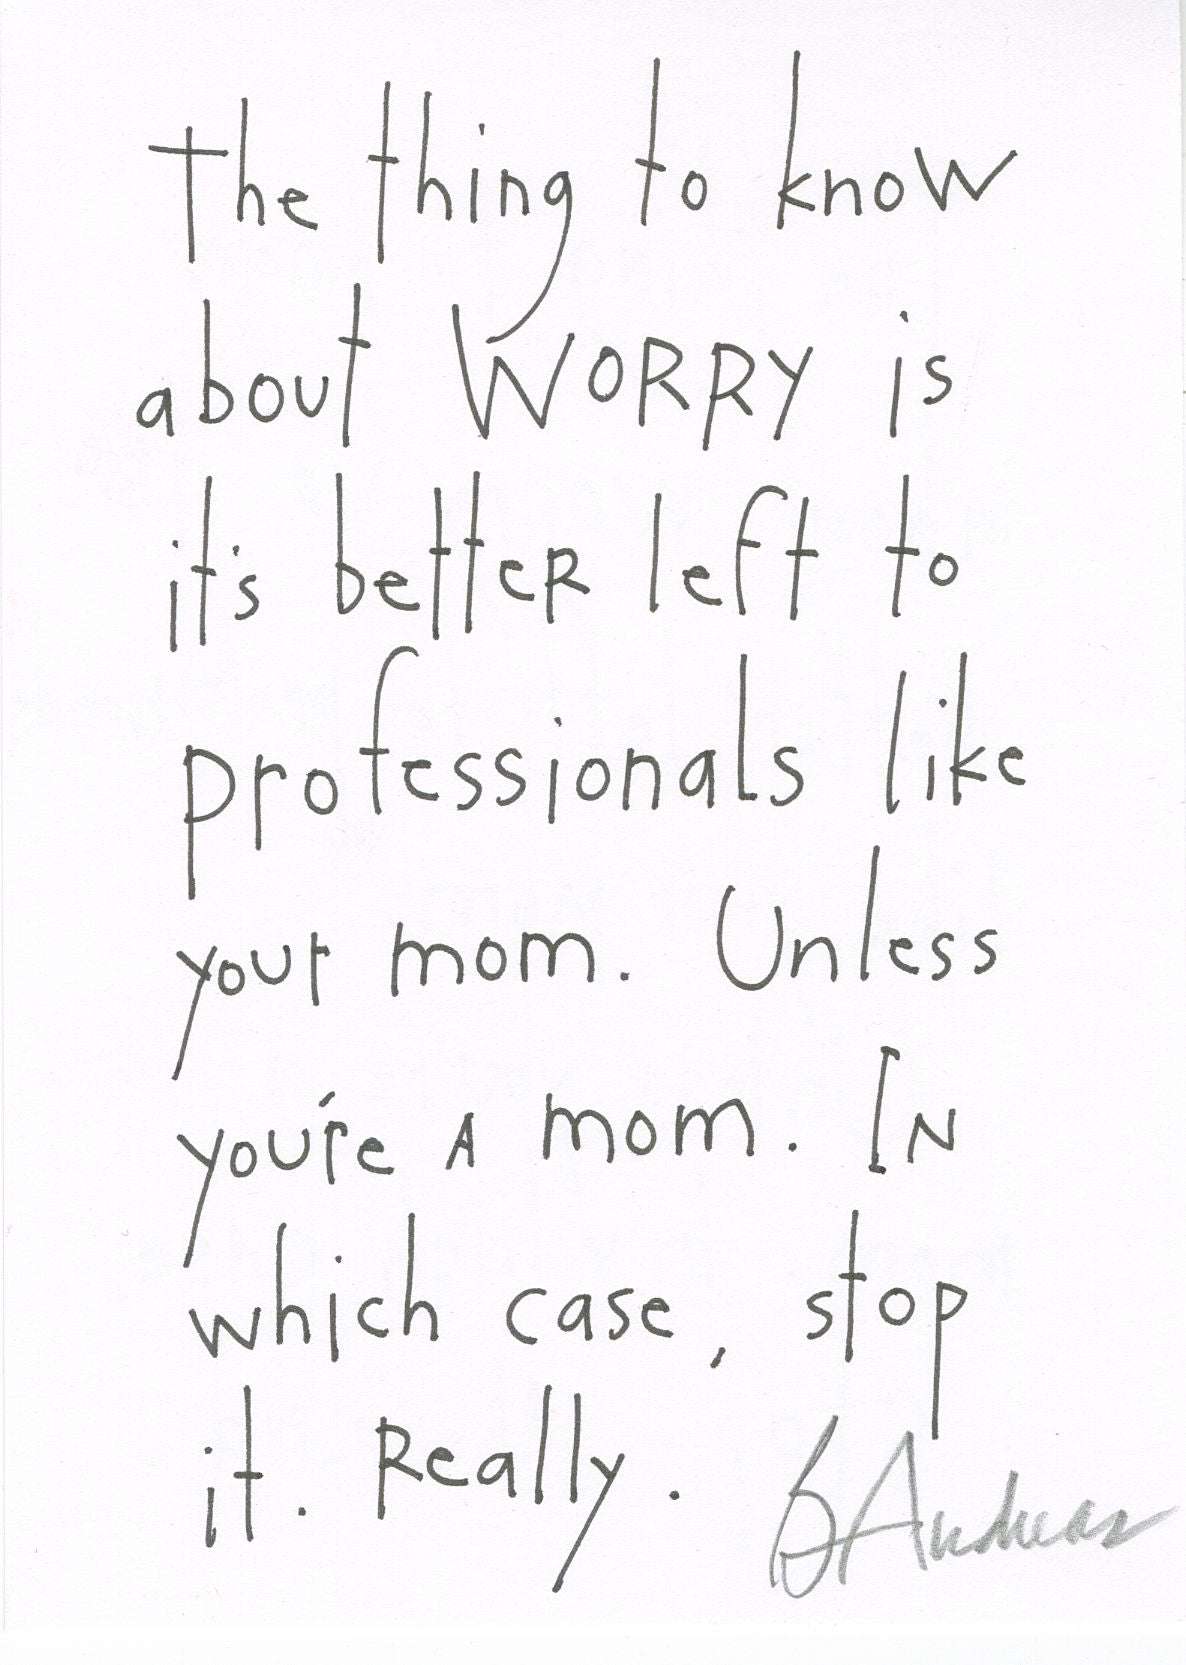 The thing to know
about WORRY is
it's better left to
professionals like
your mom. Unless
you're A mom. IN
which case, stop
it. Really.
B Andreas